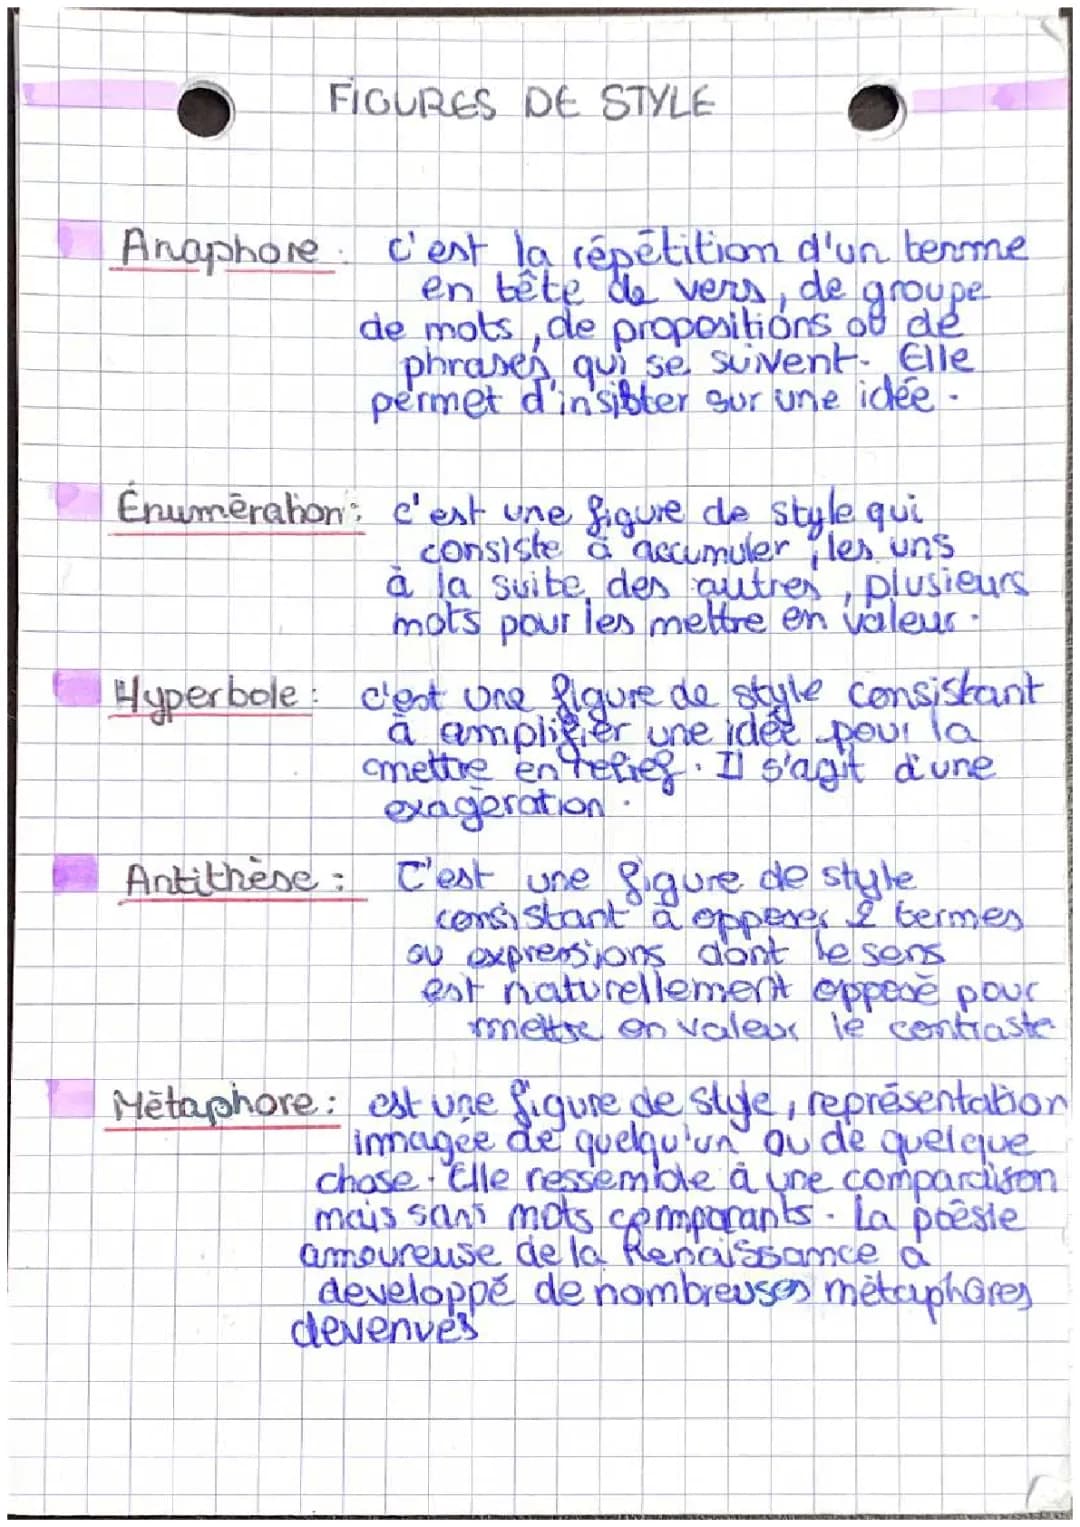 FIGURES DE STYLE
Anaphore : c'est la répétition d'un terme
en tête de vers, de groupe
de mots, de propositions ou de
phrases qui se suivent. Elle
permet d'insister sur une idée.
Énumération : c'est une figure de style qui
consiste à accumuler, les uns
à la suite des autres, plusieurs
mots pour les mettre en valeur.
Hyperbole : c'est une figure de style consistant
à amplifier une idée pour la
mettre en relief. Il s'agit d'une
exagération.
Antithèse : C'est une figure de style
consistant à opposer 2 termes
ou expressions dont le sens
est naturellement opposé pour
mettre en valeur le contraste
Métaphore : est une figure de style, représentation
immagée de quelqu'un ou de quelque
chose. Elle ressemble à une comparaison
mais sans mots comparants. La poésie
amoureuse de la Renaissance a
developpé de nombreuses métaphores
devenues